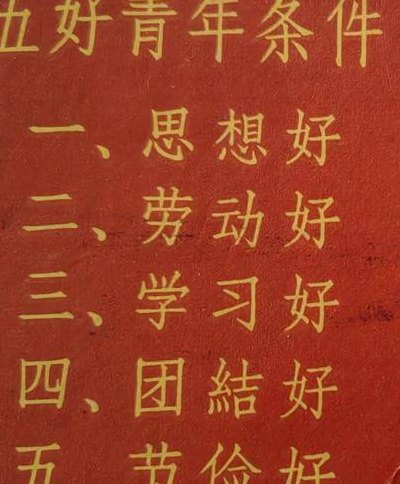 五好青年条件
一、思想好
二、劳动好
三、学习好
四、团結好
五、节俭好